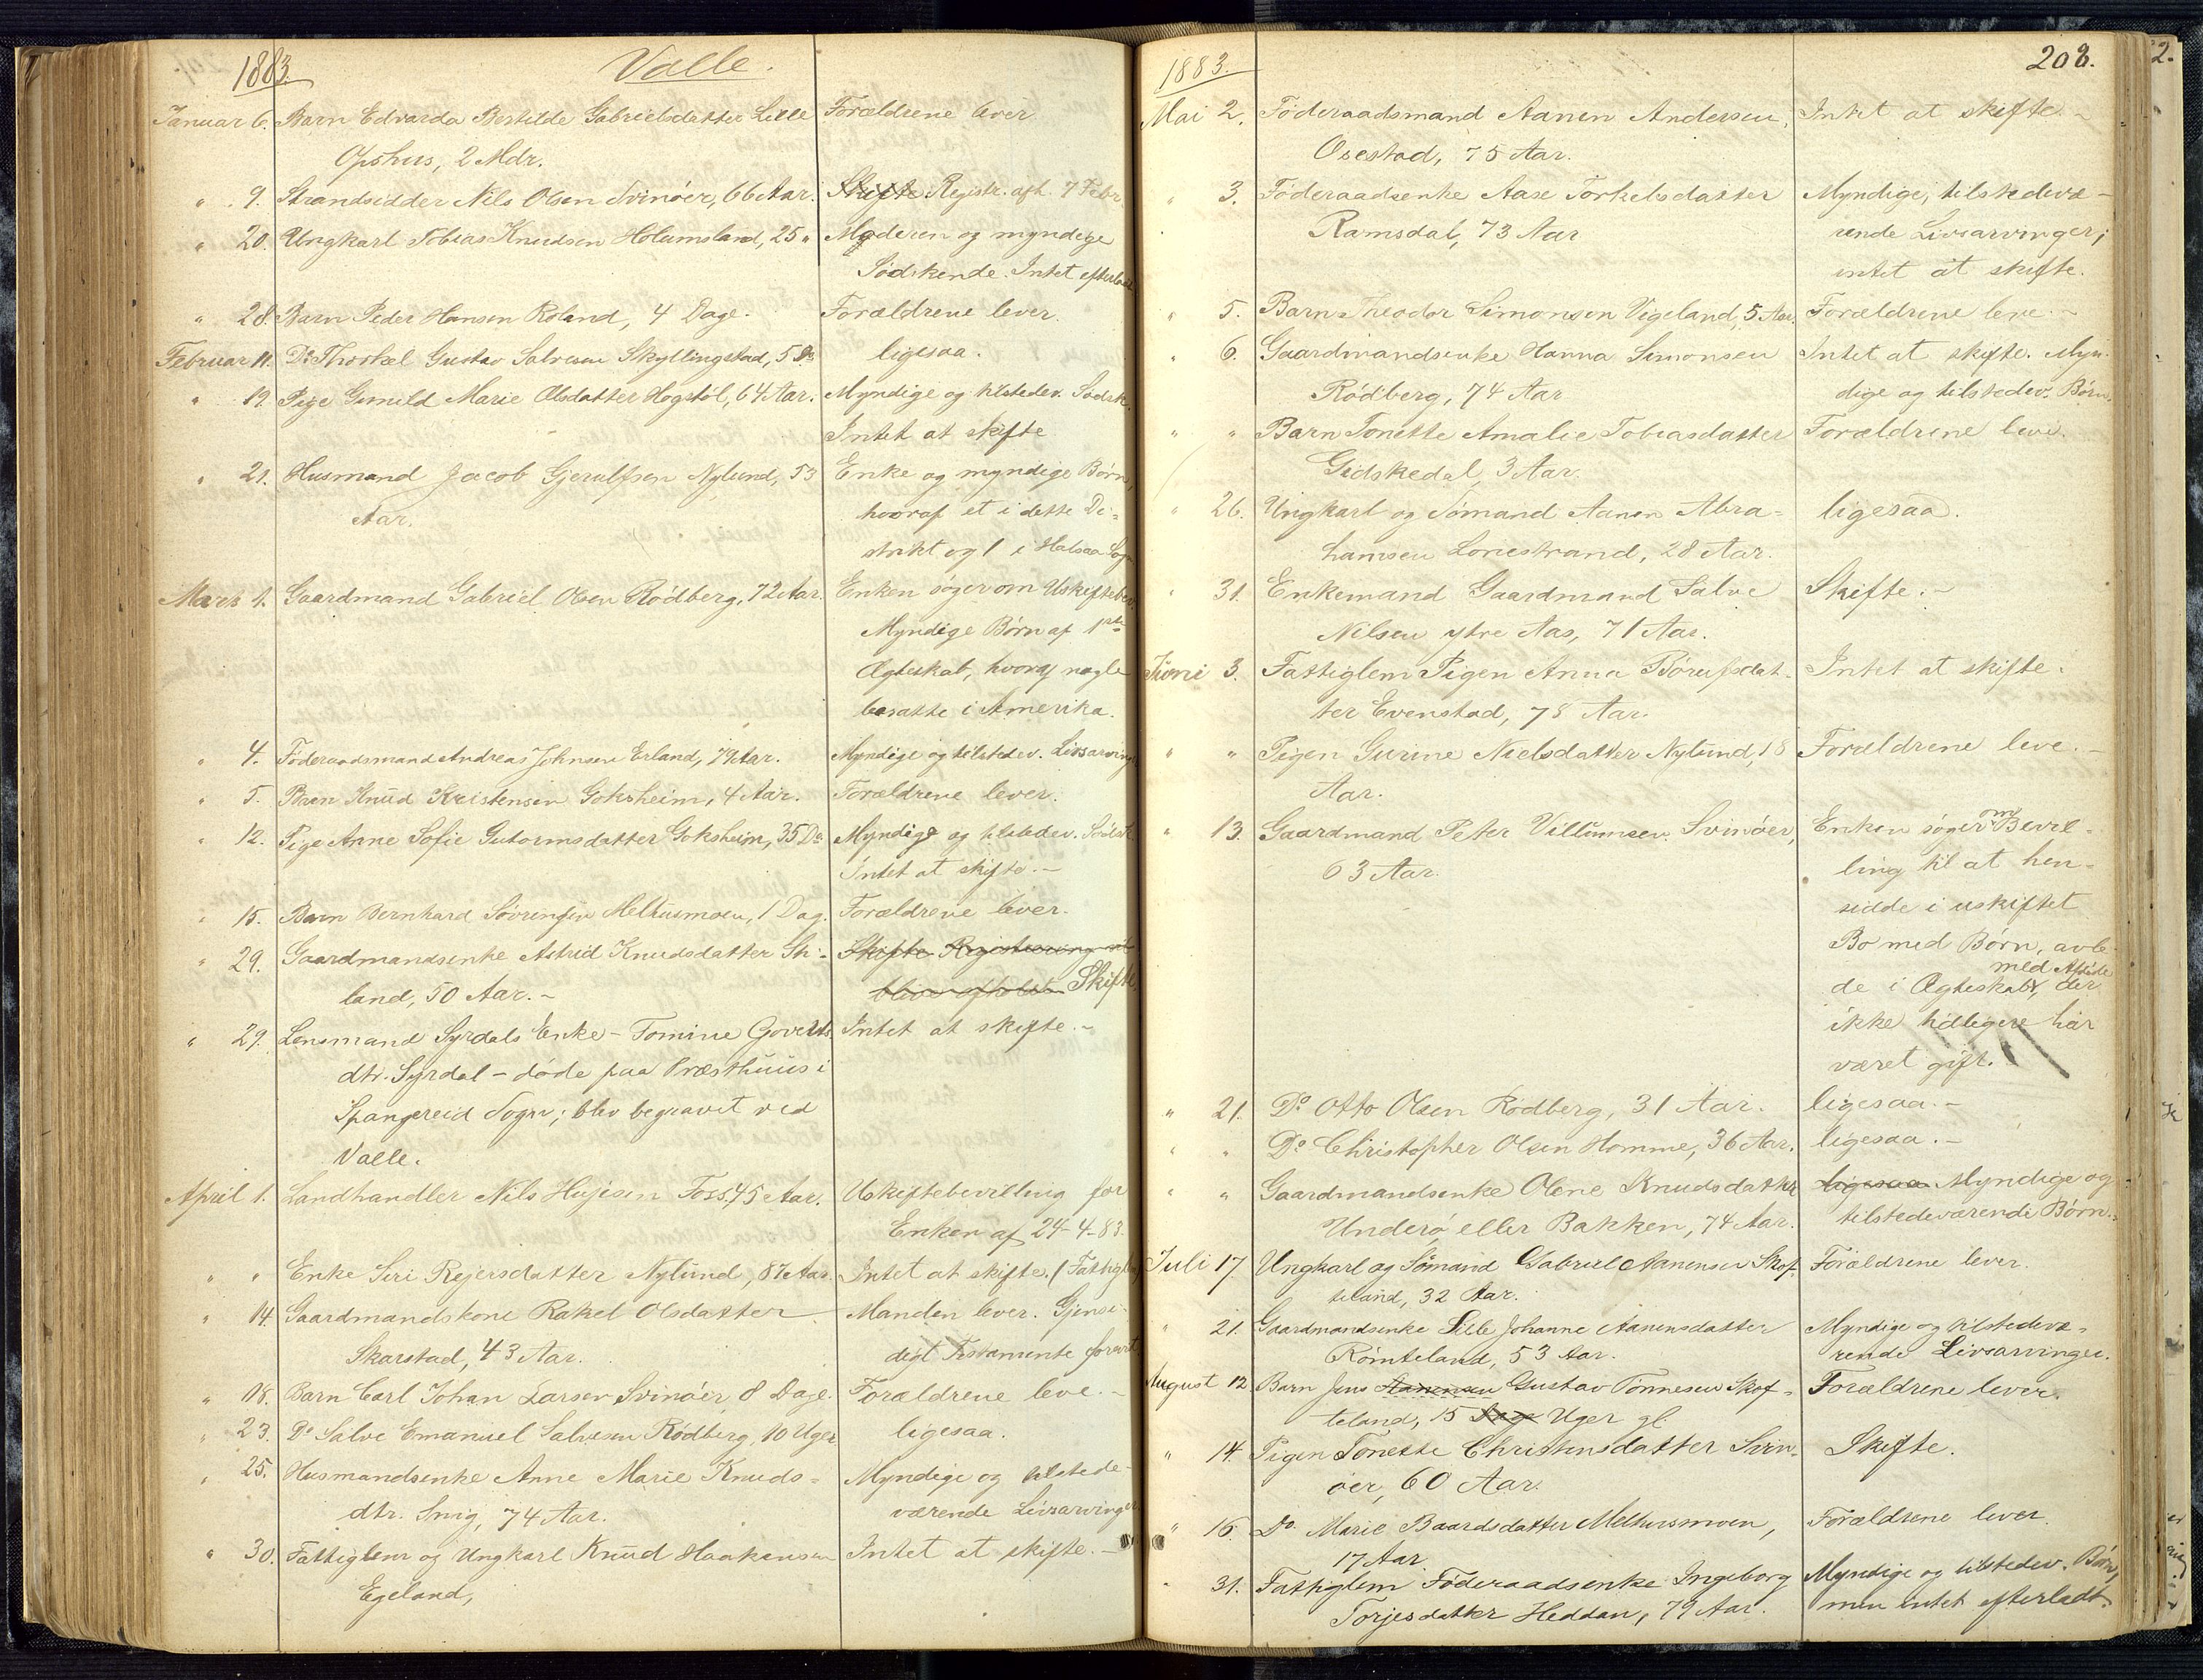 1883.
Valle.
Januar 6. Barn Edvarda Bertilde Gabrielsdatter Lille Forældrene lever
Opshus, 2 Mdr.
" 9. Strandsidder Nils Olsen Svinöer, 66 Aar. Skifte Registr. afh. 7 Febr.
" 20. Ungkarl Tobias Knudsen Holumsland, 25 " Moderen og myndige
Sødskende. Intet efterladt
" 28. Barn Peder Hansen Roland, 4 Dage. Forældrene lever.
Februar 11. Do Thorkel Gustav Salvesen Skyllingstad, 5 Do ligesaa.
" 19. Pige Gunild Marie Olsdatter Hogstöl, 64 Aar. Myndige og tilstedev. Sødsk.
Intet at skifte
" 21. Husmand Jacob Gjerulfsen Nylund, 53 Enke og myndige Börn,
Aar. hvoraf et i dette Di-
strikt og 1 i Halsaa Sogn
Marts 1. Gaardmand Gabriel Olsen Rödberg, 72 Aar. Enken söger om Uskiftebev.
Myndige Börn af 1ste
Ægteskab, hvoraf nogle
bosatte i Amerika.
" 4. Föderaadsmand Andreas Johnsen Erland, 79 Aar. Myndige og tilstedev. Livsarving
" 5. Barn Knud Kristensen Goksheim, 4 Aar. Forældrene lever.
" 12. Pige Anne Sofie Gutormsdatter Goksheim, 35 Do Myndige og tilstedev. Södsk.
Intet at skifte. -
" 15. Barn Bernhard Sövrensen Melhusmoen, 1 Dag. Forældrene lever.
" 29. Gaardmandsenke Astrid Knudsdatter Sti- Skifte Registrering vil
land, 50 Aar. - blive afholdt Skifte.
" 29. Lensmand Syrdals Enke - Tomine Goverts Intet at skifte. -
dtr. Syrdal - döde paa Præsthuus i
Spangereid Sogn; blev begravet ved
Valle.
April 1. Landhandler Nils Hujesen Foss, 45 Aar. Uskiftebevilling for
Enken af 24-4-83.
" " Enke Siri Rejersdatter Nylund, 87 Aar. Intet at skifte. (Fattigl
" 14. Gaardmandskone Rakel Olsdatter Manden lever. Gjensi-
Skarstad, 43 Aar. digt Testamente forevist
" 18. Barn Carl Johan Larsen Svinöer, 8 Dage. Forældrene leve. -
" 23. Do Salve Emanuel Salvesen Rödberg, 10 Uger ligesaa.
" 25. Husmandsenke Anne Marie Knuds- Myndige og tilstede-
dtr. Snig, 74 Aar. værende Livsarvinger
" 30. Fattiglem og Ungkarl Knud Haakensen Intet at skifte. -
Egeland,
1883.
208.
Mai 2. Föderaadsmand Aanen Andersen, Intet at skifte. -
Osestad, 75 Aar.
" 3. Föderaadsenke Aase Torkelsdatter Myndige, tilstedevæ-
Ramsdal, 73 Aar rende Livsarvinger;
intet at skifte.
" 5. Barn Theodor Simonsen Vigeland, 5 Aar. Forældrene leve. -
" 6. Gaardmandsenke Hanna Simonsen Intet at skifte. Myn-
Rödberg, 74 Aar dige og tilstedev. Börn.
" " Barn Tonette Amalie Tobiasdatter Forældrene leve.
Gidskedal, 3 Aar.
" 26. Ungkarl og Sömand Aanen Abra- ligesaa.
hamsen Lonestrand, 28 Aar.
" 31. Enkemand Gaardmand Salve Skifte. -
Nilsen ytre Aas, 71 Aar.
Juni 3. Fattiglem Pigen Anna Börufsdat- Intet at skifte.
ter Evenstad, 78 Aar.
" " Pigen Gurine Nielsdatter Nylund, 18 Forældrene leve. -
Aar.
" 13. Gaardmand Peter Villumsen Svinöer, Enken söger om Bevil-
63 Aar. ling til at hen-
sidde i uskiftet
Bo med Börn, avle-
de i Ægteskab med Afdöde, der
ikke tidligere har
været gift.
" 21. Do Otto Olsen Rödberg, 31 Aar. ligesaa. -
" " Do Christopher Olsen Homme, 36 Aar. ligesaa. -
" " Gaardmandsenke Olene Knudsdatter ligesaa Myndige og
Underö eller Bakken, 74 Aar. tilstedeværende Börn.
Juli 17. Ungkarl og Sömand Gabriel Aanensen Skof- Forældrene lever.
teland, 32 Aar.
" 21. Gaardmandsenke Sille Johanne Aanensdatter Myndige og tilstedevæ-
Römteland, 53 Aar. rende Livsarvinger.
August 12. Barn Jens Aanensen Gustav Tönnesen Skof- Forældrene lever.
teland, 15 Dage Uger gl.
" 14. Pigen Tonette Christensdatter Svin- Skifte.
öer, 60 Aar.
" 16. Do. Marie Baardsdatter Melhusmoen, Forældrene lever.
17 Aar
" 31. Fattiglem Föderaadsenke Ingeborg Myndige og tilstedev. Börn,
Torjesdatter Heddan, 79 Aar. men intet efterladt.